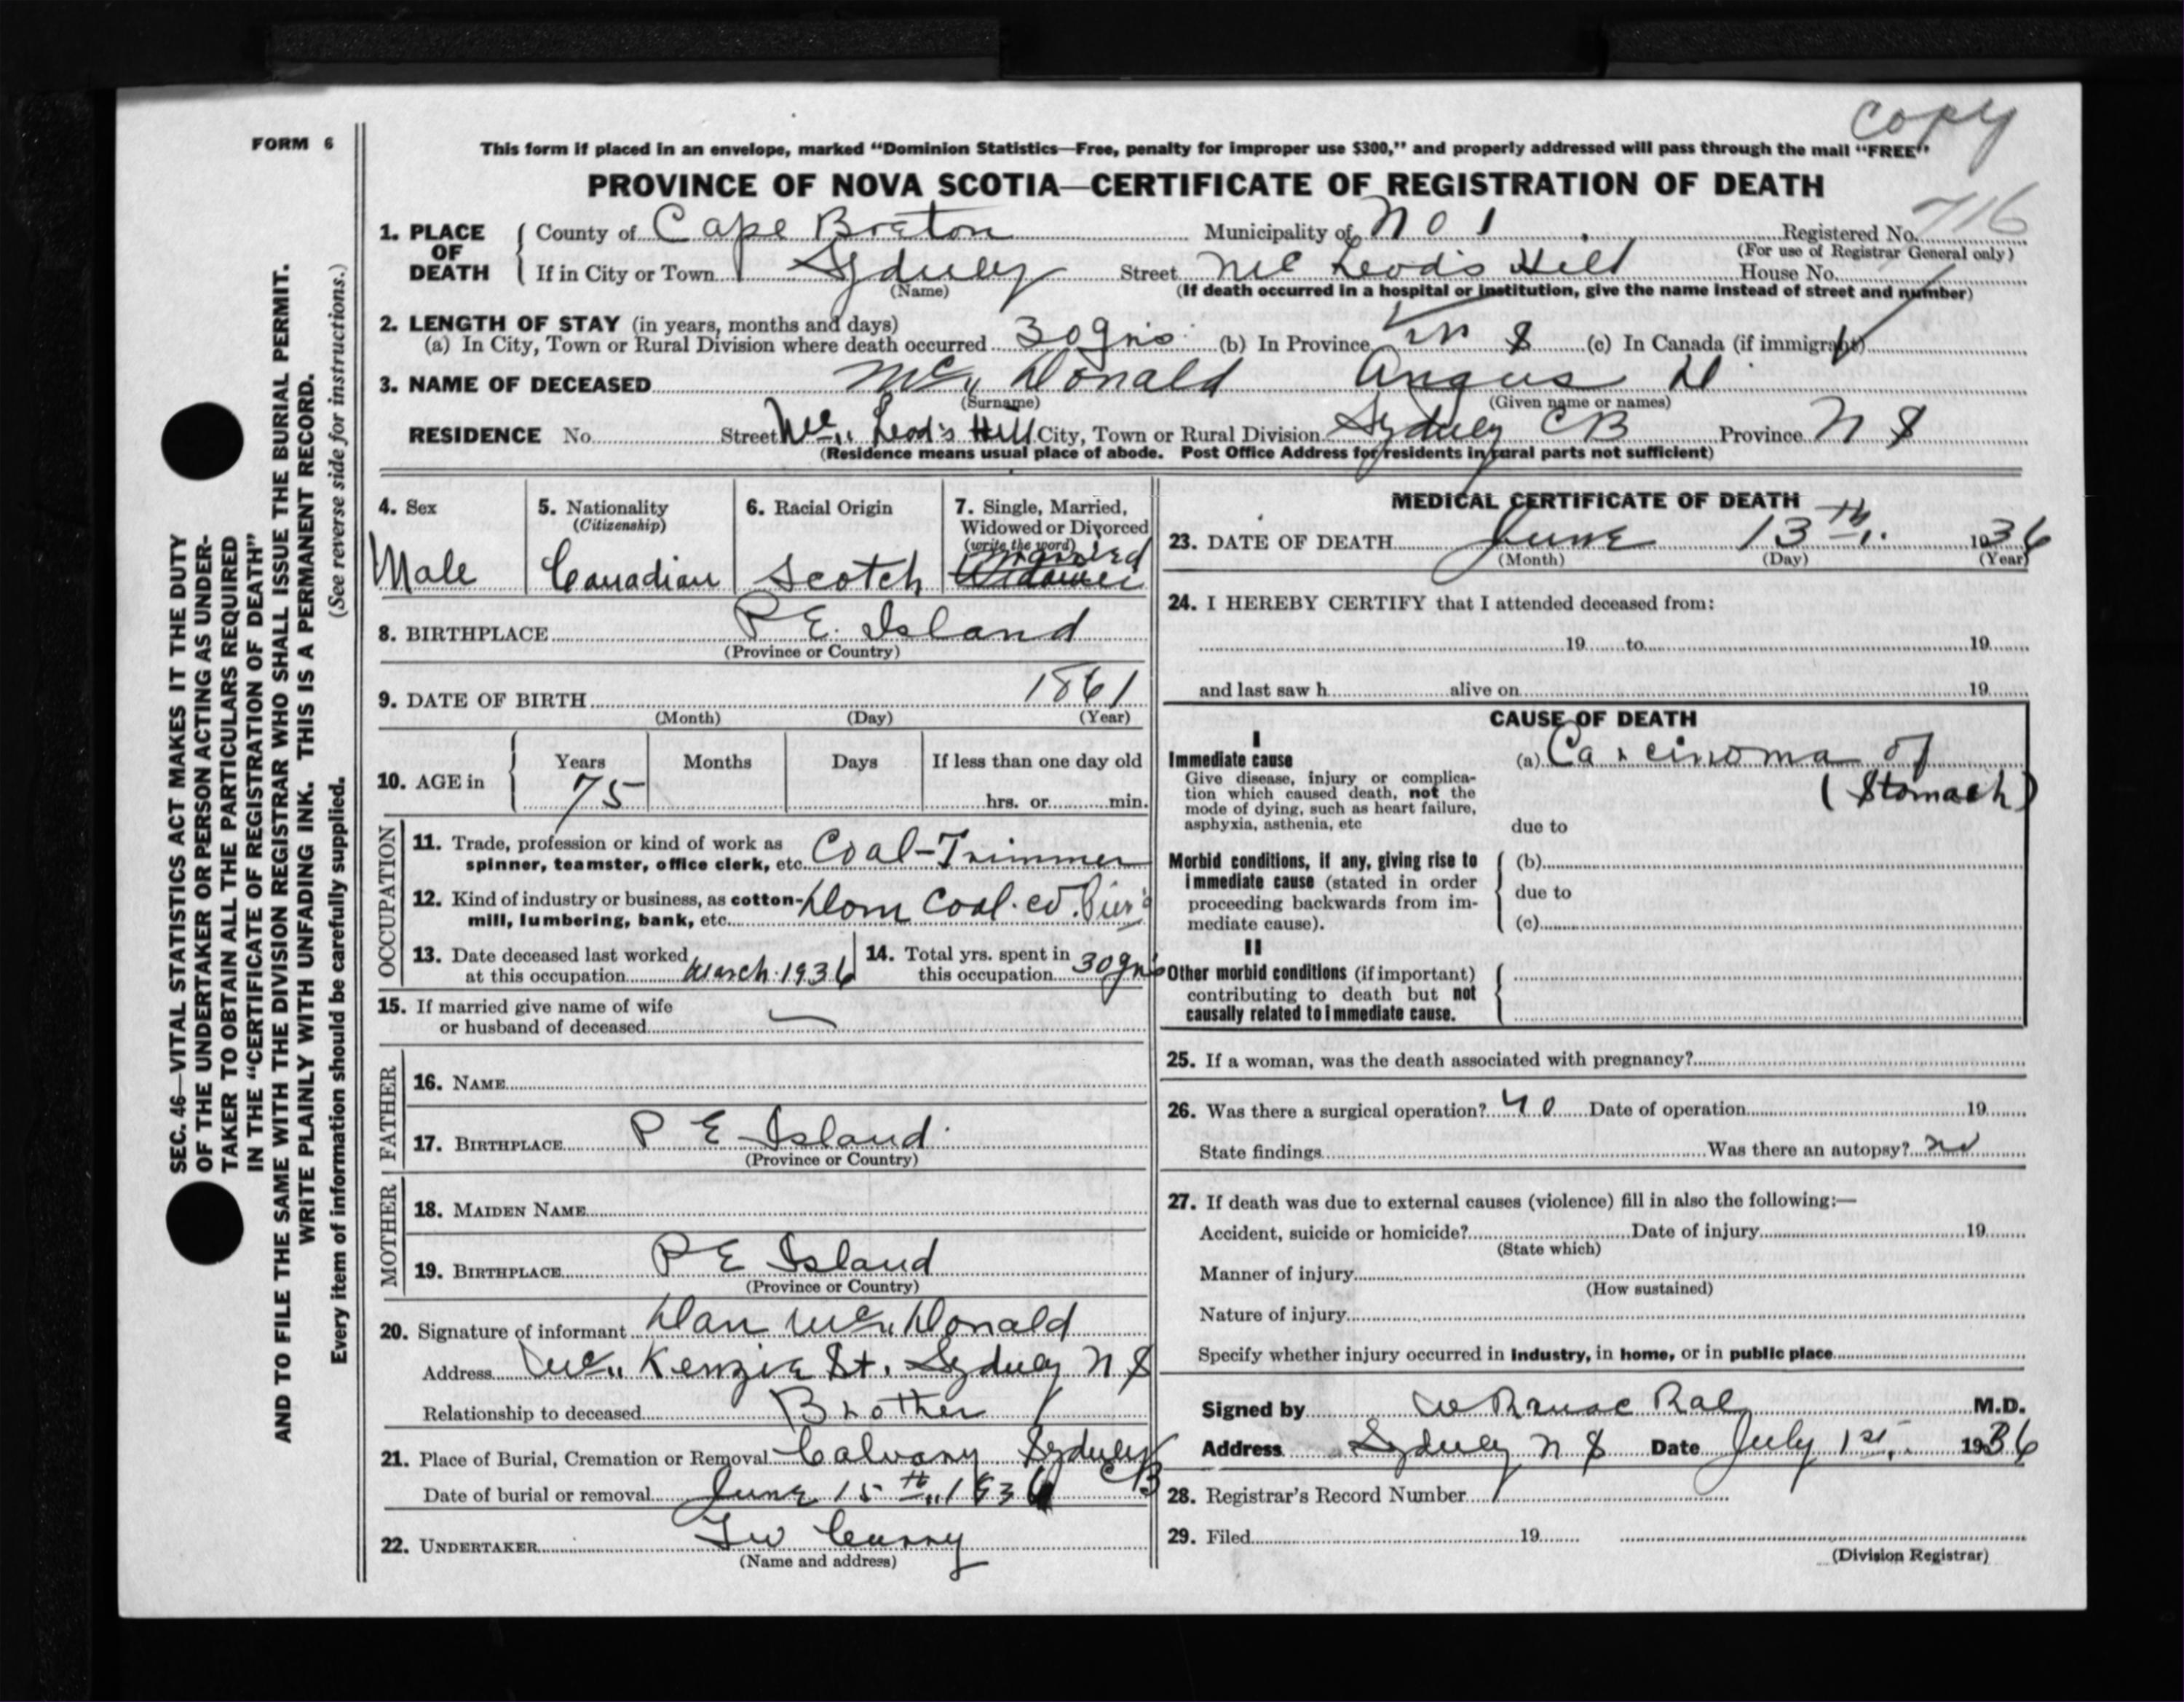 copy
FORM 6
This form if placed in an envelope, marked "Dominion Statistics—Free, penalty for improper use $300," and properly addressed will pass through the mail "FREE"
PROVINCE OF NOVA SCOTIA—CERTIFICATE OF REGISTRATION OF DEATH
716
1. PLACE OF DEATH County of Cape Breton Municipality of No 1 Registered No.
(For use of Registrar General only)
If in City or Town Sydney Street Mc Leod's Hill House No.
(Name) (If death occurred in a hospital or institution, give the name instead of street and number)
2. LENGTH OF STAY (in years, months and days)
(a) In City, Town or Rural Division where death occurred 30 yrs (b) In Province N S (c) In Canada (if immigrant)
3. NAME OF DECEASED Mc Donald Angus D
(Surname) (Given name or names)
RESIDENCE No. Street Mc Leod's Hill City, Town or Rural Division Sydney CB Province N S
(Residence means usual place of abode. Post Office Address for residents in rural parts not sufficient)
4. Sex
Male
5. Nationality
(Citizenship)
Canadian
6. Racial Origin
Scotch
7. Single, Married,
Widowed or Divorced
(write the word)
Married
8. BIRTHPLACE P E. Island
(Province or Country)
9. DATE OF BIRTH 1861
(Month) (Day) (Year)
10. AGE in Years Months Days If less than one day old
75 hrs. or min.
OCCUPATION
11. Trade, profession or kind of work as
spinner, teamster, office clerk, etc. Coal-Trimmer
12. Kind of industry or business, as cotton-
mill, lumbering, bank, etc. Dom Coal. co. Piers
13. Date deceased last worked
at this occupation March 1936
14. Total yrs. spent in
this occupation 30 yrs
15. If married give name of wife
or husband of deceased
FATHER
16. NAME
17. BIRTHPLACE P E Island
(Province or Country)
MOTHER
18. MAIDEN NAME
19. BIRTHPLACE P E Island
(Province or Country)
20. Signature of informant Dan Mc Donald
Address Mc Kenzie St. Sydney N S
Relationship to deceased Brother
21. Place of Burial, Cremation or Removal Calvary Sydney CB
Date of burial or removal June 15th 1936
22. UNDERTAKER Curry
(Name and address)
MEDICAL CERTIFICATE OF DEATH
23. DATE OF DEATH June 13th 1936
(Month) (Day) (Year)
24. I HEREBY CERTIFY that I attended deceased from:
19 to 19
and last saw h alive on 19
CAUSE OF DEATH
I
Immediate cause (a) Carcinoma of
(Stomach)
Give disease, injury or complica-
tion which caused death, not the
mode of dying, such as heart failure,
asphyxia, asthenia, etc due to
Morbid conditions, if any, giving rise to (b)
immediate cause (stated in order
proceeding backwards from im- due to
mediate cause). (c)
II
Other morbid conditions (if important)
contributing to death but not
causally related to immediate cause.
25. If a woman, was the death associated with pregnancy?
26. Was there a surgical operation? no Date of operation 19
State findings Was there an autopsy? no
27. If death was due to external causes (violence) fill in also the following:—
Accident, suicide or homicide? Date of injury 19
(State which)
Manner of injury
(How sustained)
Nature of injury
Specify whether injury occurred in industry, in home, or in public place
Signed by M.D.
Address Sydney N S Date July 1st. 1936
28. Registrar's Record Number
29. Filed 19
(Division Registrar)
SEC. 46—VITAL STATISTICS ACT MAKES IT THE DUTY
OF THE UNDERTAKER OR PERSON ACTING AS UNDER-
TAKER TO OBTAIN ALL THE PARTICULARS REQUIRED
IN THE "CERTIFICATE OF REGISTRATION OF DEATH"
AND TO FILE THE SAME WITH THE DIVISION REGISTRAR WHO SHALL ISSUE THE BURIAL PERMIT.
WRITE PLAINLY WITH UNFADING INK. THIS IS A PERMANENT RECORD.
Every item of information should be carefully supplied. (See reverse side for instructions.)